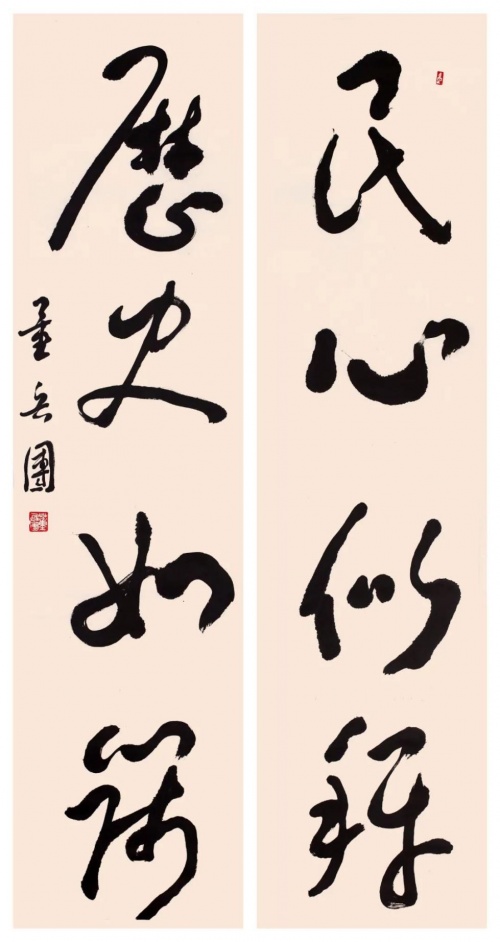 民心似秤
歷史如篩
董兵團